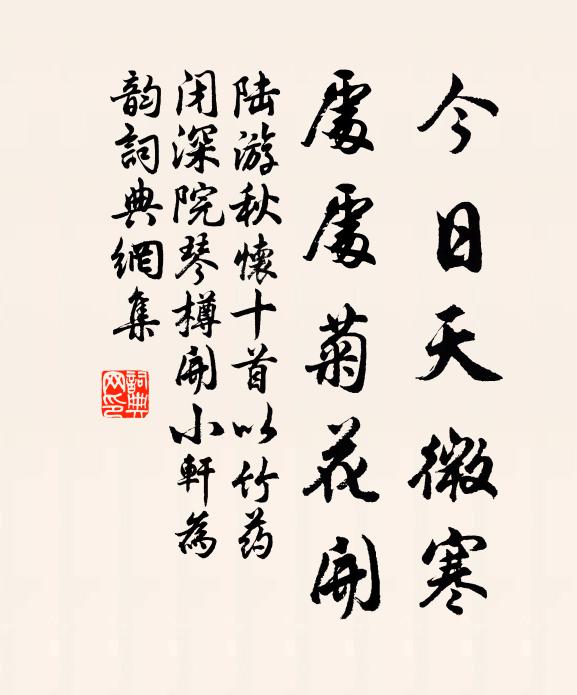 今日天微寒
處處菊花開
陆游秋懷十首以竹药
闭深院琴樽開小軒為
韵詞典網集
詞典
网印